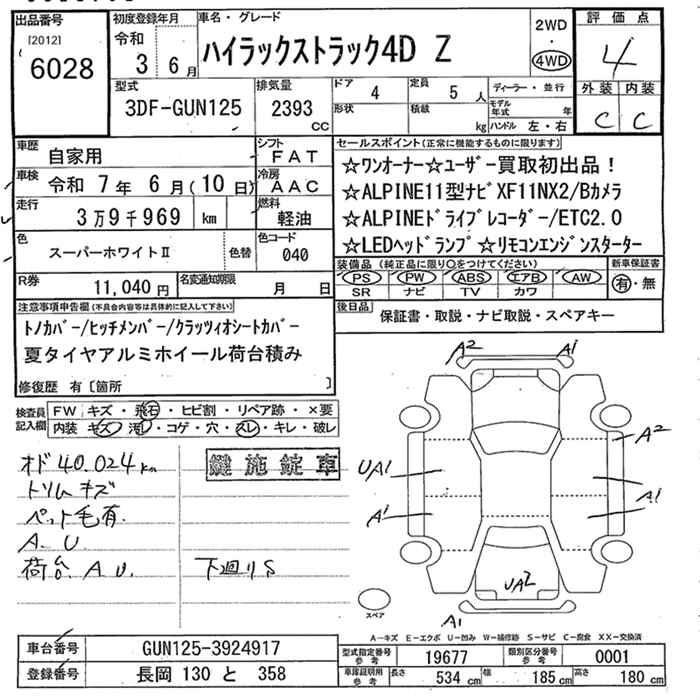 出品番号
[2012]
6028
初度登録年月
令和
3 6月
車名・グレード
ハイラックストラック4D Z
2WD
4WD
評価点
4
外装 内装
C C
型式
3DF-GUN125
排気量
2393
CC
ドア
4
定員
5人
形状
積載
kg
ディーラー・並行
モデル年式
年
ハンドル 左・右
車歴
自家用
シフト
FAT
車検
令和 7年 6月(10日)
冷房
AAC
走行
3万9千969 km
燃料
軽油
色
スーパーホワイトII
色替
色コード
040
R券
11,040円
名変通知期限
月 日
セールスポイント(正常に機能するものに限ります)
☆ワンオーナー☆ユーザー買取初出品!
☆ALPINE11型ナビXF11NX2/Bカメラ
☆ALPINEドライブレコーダー/ETC2.0
☆LEDヘッドランプ☆リモコンエンジンスターター
装備品(純正品に限り○をつけてください)
PS PW ABS エアB AW
SR ナビ TV カワ
新車保証書
有・無
後日品
保証書・取説・ナビ取説・スペアキー
注意事項申告欄(不具合内容等は具体的に記入して下さい)
トノカバー/ヒッチメンバー/クラッツィオシートカバー
夏タイヤアルミホイール荷台積み
修復歴 有〔箇所 〕
検査員記入欄
FW キズ・飛石・ヒビ割・リペア跡・×要
内装 キズ・汚レ・コゲ・穴・スレ・キレ・破レ
オド 40.024km
トリムキズ
ペット毛有.
A.U
荷台A.U.
下廻りS
鍵施錠車
A2
A1
A2
UA1
A1
A1
UA2
A1
スペア
A-キズ E-エクボ U-凹み W-補修跡 S-サビ C-腐食 XX-交換済
車台番号
GUN125-3924917
登録番号
長岡 130 と 358
型式指定番号
参考
19677
類別区分番号
参考
0001
車庫証明用
参考
長さ
534cm
幅
185cm
高さ
180cm